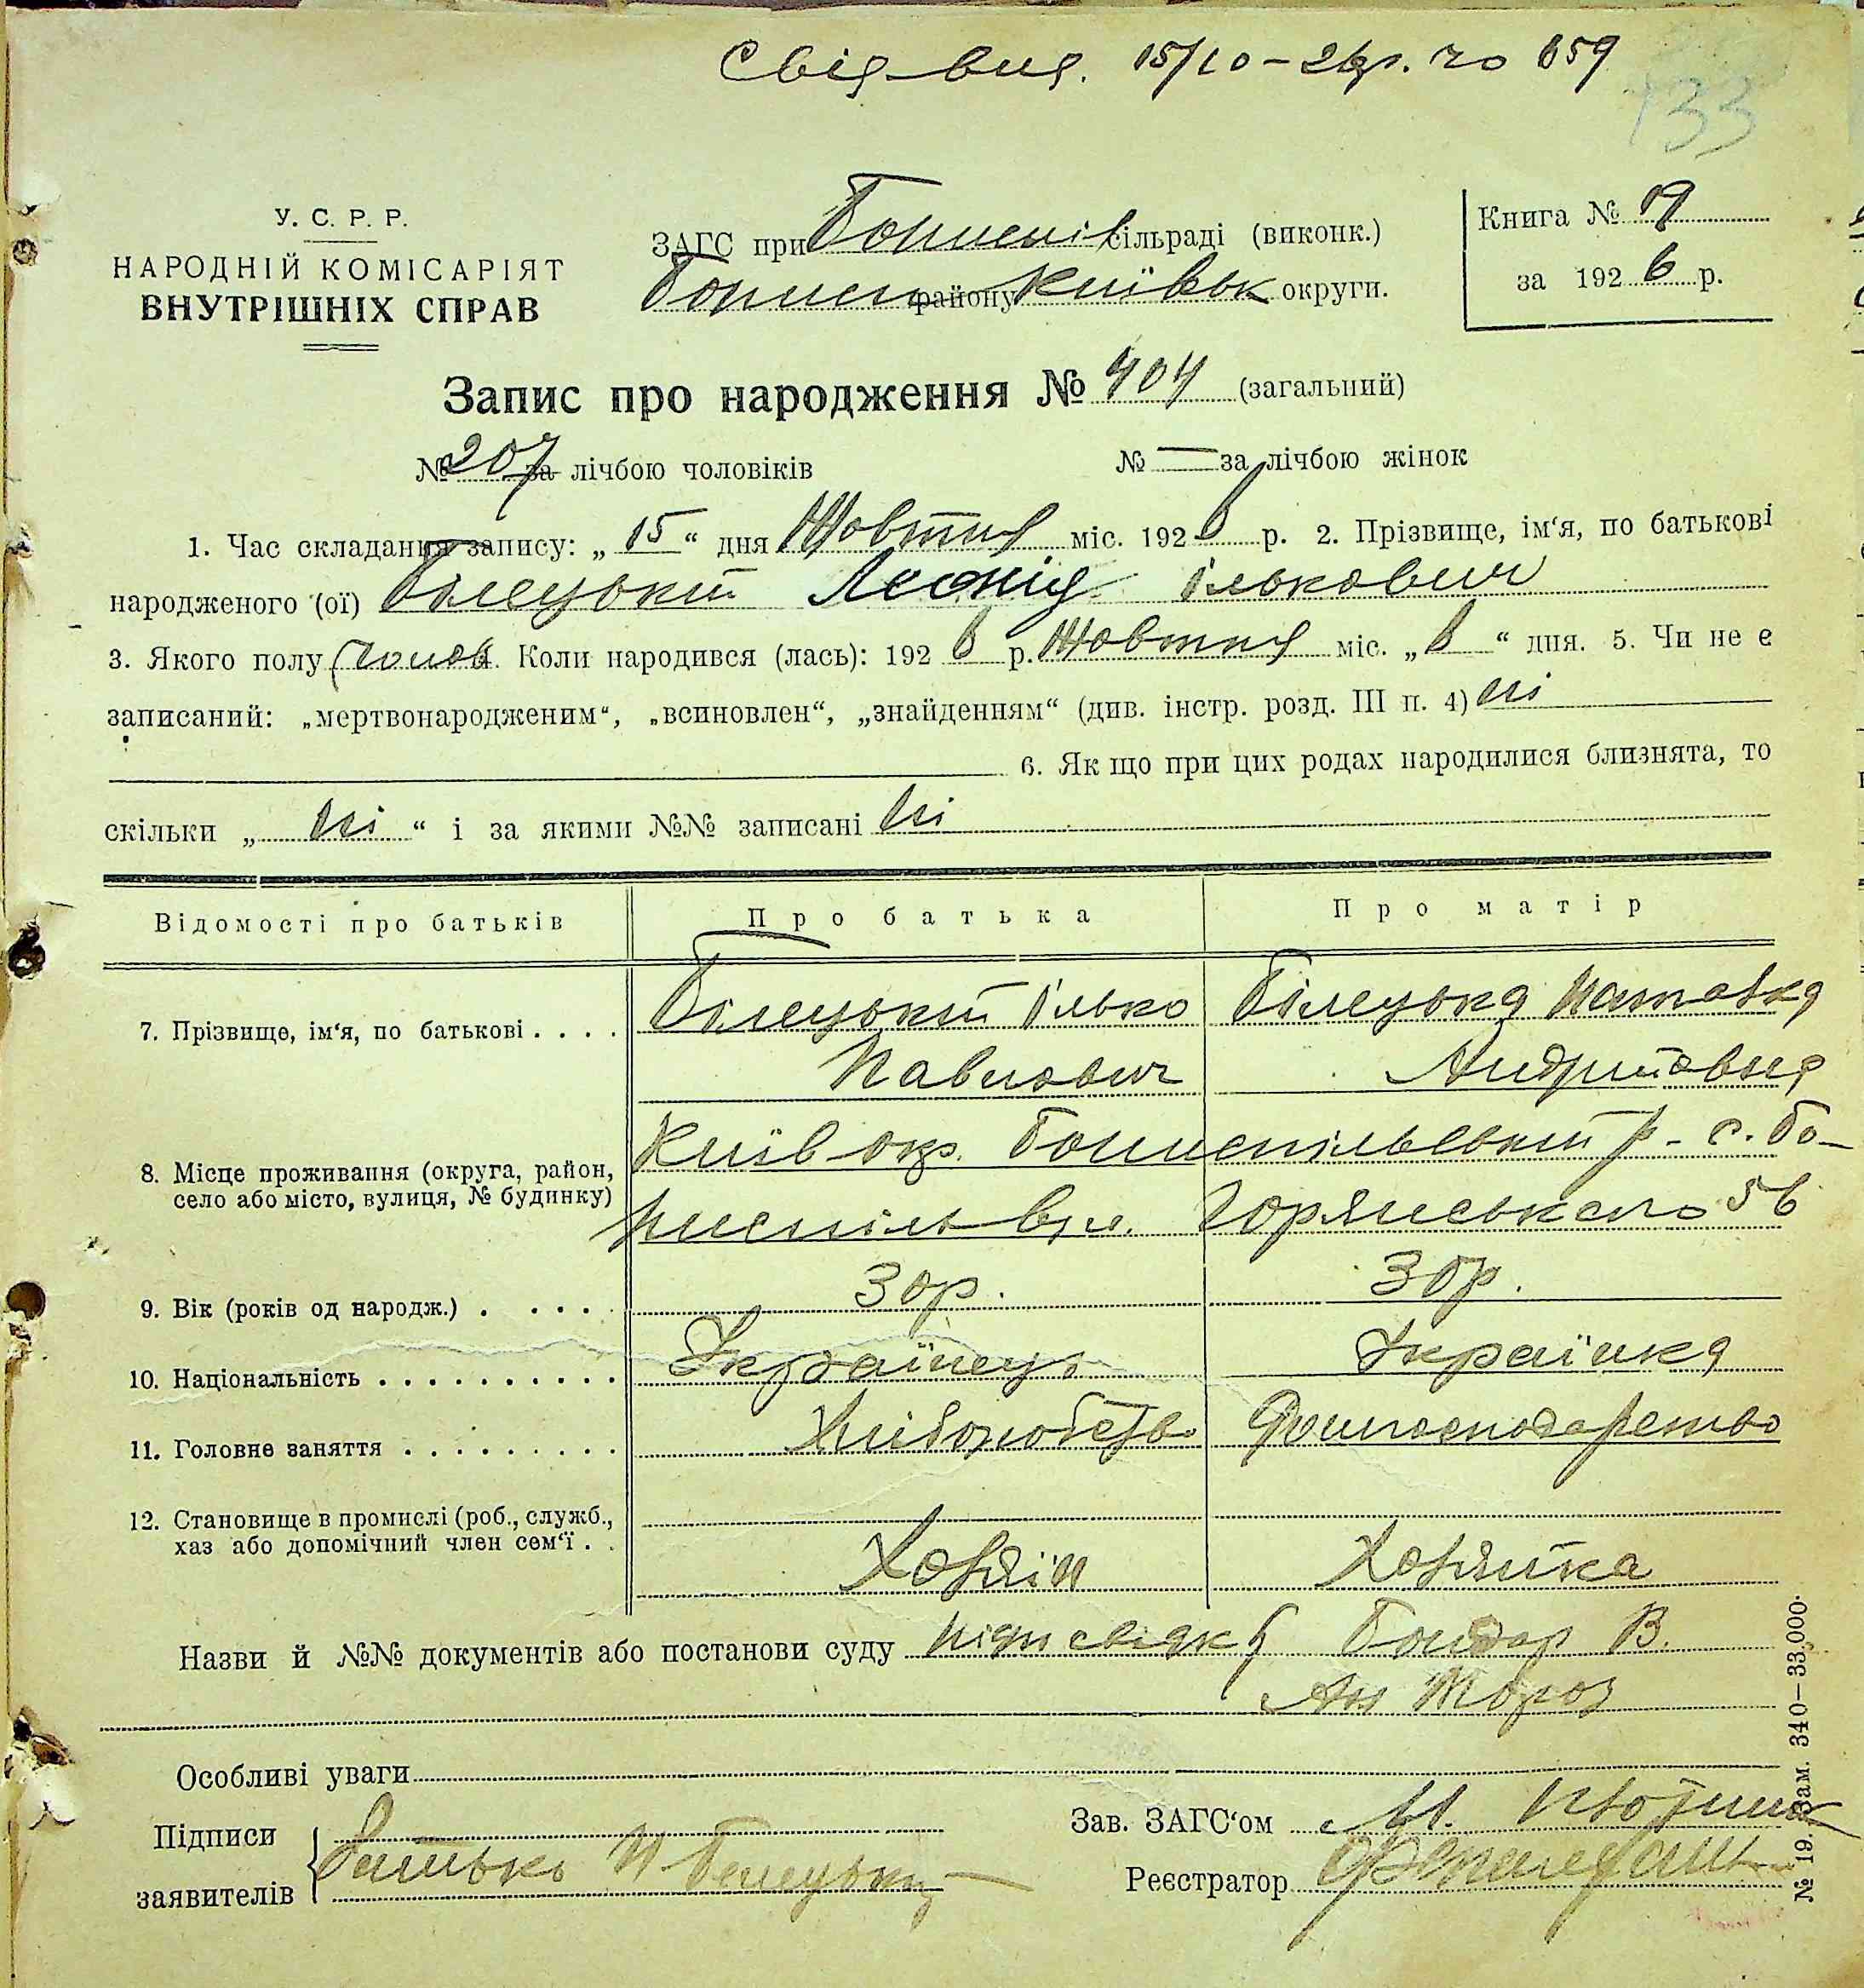 Свід вид. 15/10-26р. no 659
133
У. С. Р. Р.
НАРОДНІЙ КОМІСАРІЯТ
ВНУТРІШНІХ СПРАВ
ЗАГС при Бориспіл сільраді (виконк.)
Борисп району Київськ округи.
Книга № 19
за 1926 р.
Запис про народження № 404 (загальний)
№ 207 за лічбою чоловіків
№ — за лічбою жінок
1. Час складання запису: „ 15 “ дня Жовтня міс. 1926 р. 2. Прізвище, ім‘я, по батькові
народженого (ої) Білецький Леонід Ількович
3. Якого полу чолов. Коли народився (лась): 1926 р. Жовтня міс. „ 6 “ дня. 5. Чи не є
записаний: „мертвонародженим“, „всиновлен“, „знайденням“ (див. інстр. розд. III п. 4) ні
6. Як що при цих родах народилися близнята, то
скільки „ ні “ і за якими №№ записані ні
Відомості про батьків
Про батька
Про матір
7. Прізвище, ім‘я, по батькові . . . .
Білецький Ілько
Павлович
Білецька Наталка
Андріївна
8. Місце проживання (округа, район,
село або місто, вулиця, № будинку)
Київ окр. Бориспільський р- с. Бо-
риспіль вул. 56
9. Вік (років од народж.) . . . .
30р.
30р.
10. Національність . . . . . . . . . .
Українець
Українка
11. Головне заняття . . . . . . . . .
Хліборобство
Домгосподарство
12. Становище в промислі (роб., служб.,
хаз або допомічний член сем‘ї . .
Хозяїн
Хозяйка
Назви й №№ документів або постанови суду Бондар В.
Мороз
Особливі уваги
Підписи
заявителів
Батько Білецький
Зав. ЗАГС‘ом
Реєстратор
№ 19. Зам. 340—33.000.